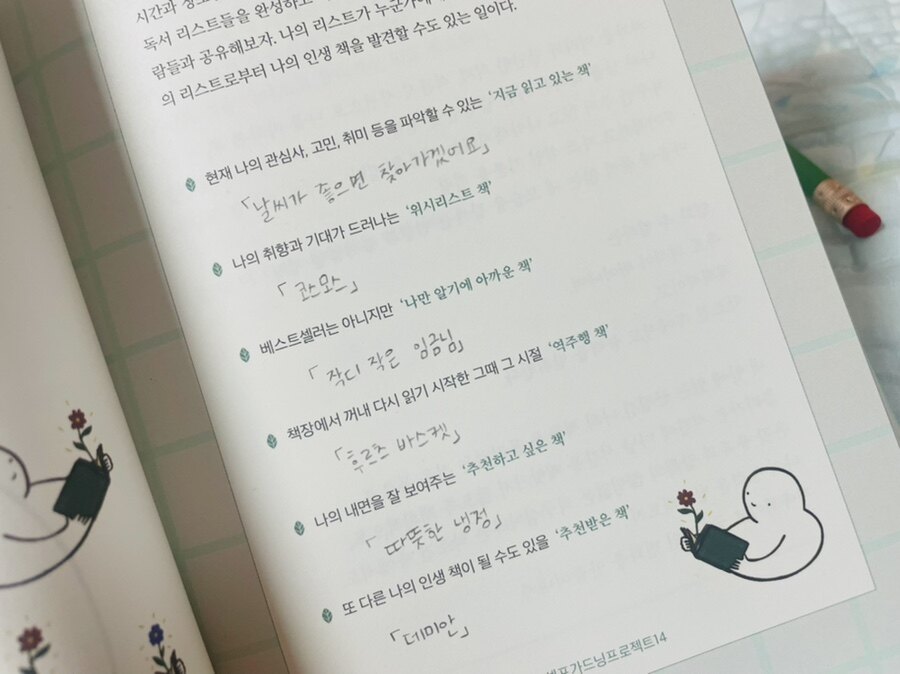 독서 리스트들을 완성하고
람들과 공유해보자. 나의 리스트가 누군가에
의 리스트로부터 나의 인생 책을 발견할 수도 있는 일이다.
현재 나의 관심사, 고민, 취미 등을 파악할 수 있는 ‘지금 읽고 있는 책’
「날씨가 좋으면 찾아가겠어요」
나의 취향과 기대가 드러나는 ‘위시리스트 책’
「코스모스」
베스트셀러는 아니지만 ‘나만 알기에 아까운 책’
「작디 작은 임금님」
책장에서 꺼내 다시 읽기 시작한 그때 그 시절 ‘역주행 책’
「후르츠 바스켓」
나의 내면을 잘 보여주는 ‘추천하고 싶은 책’
「따뜻한 냉정」
또 다른 나의 인생 책이 될 수도 있을 ‘추천받은 책’
「데미안」
셀프가드닝프로젝트14